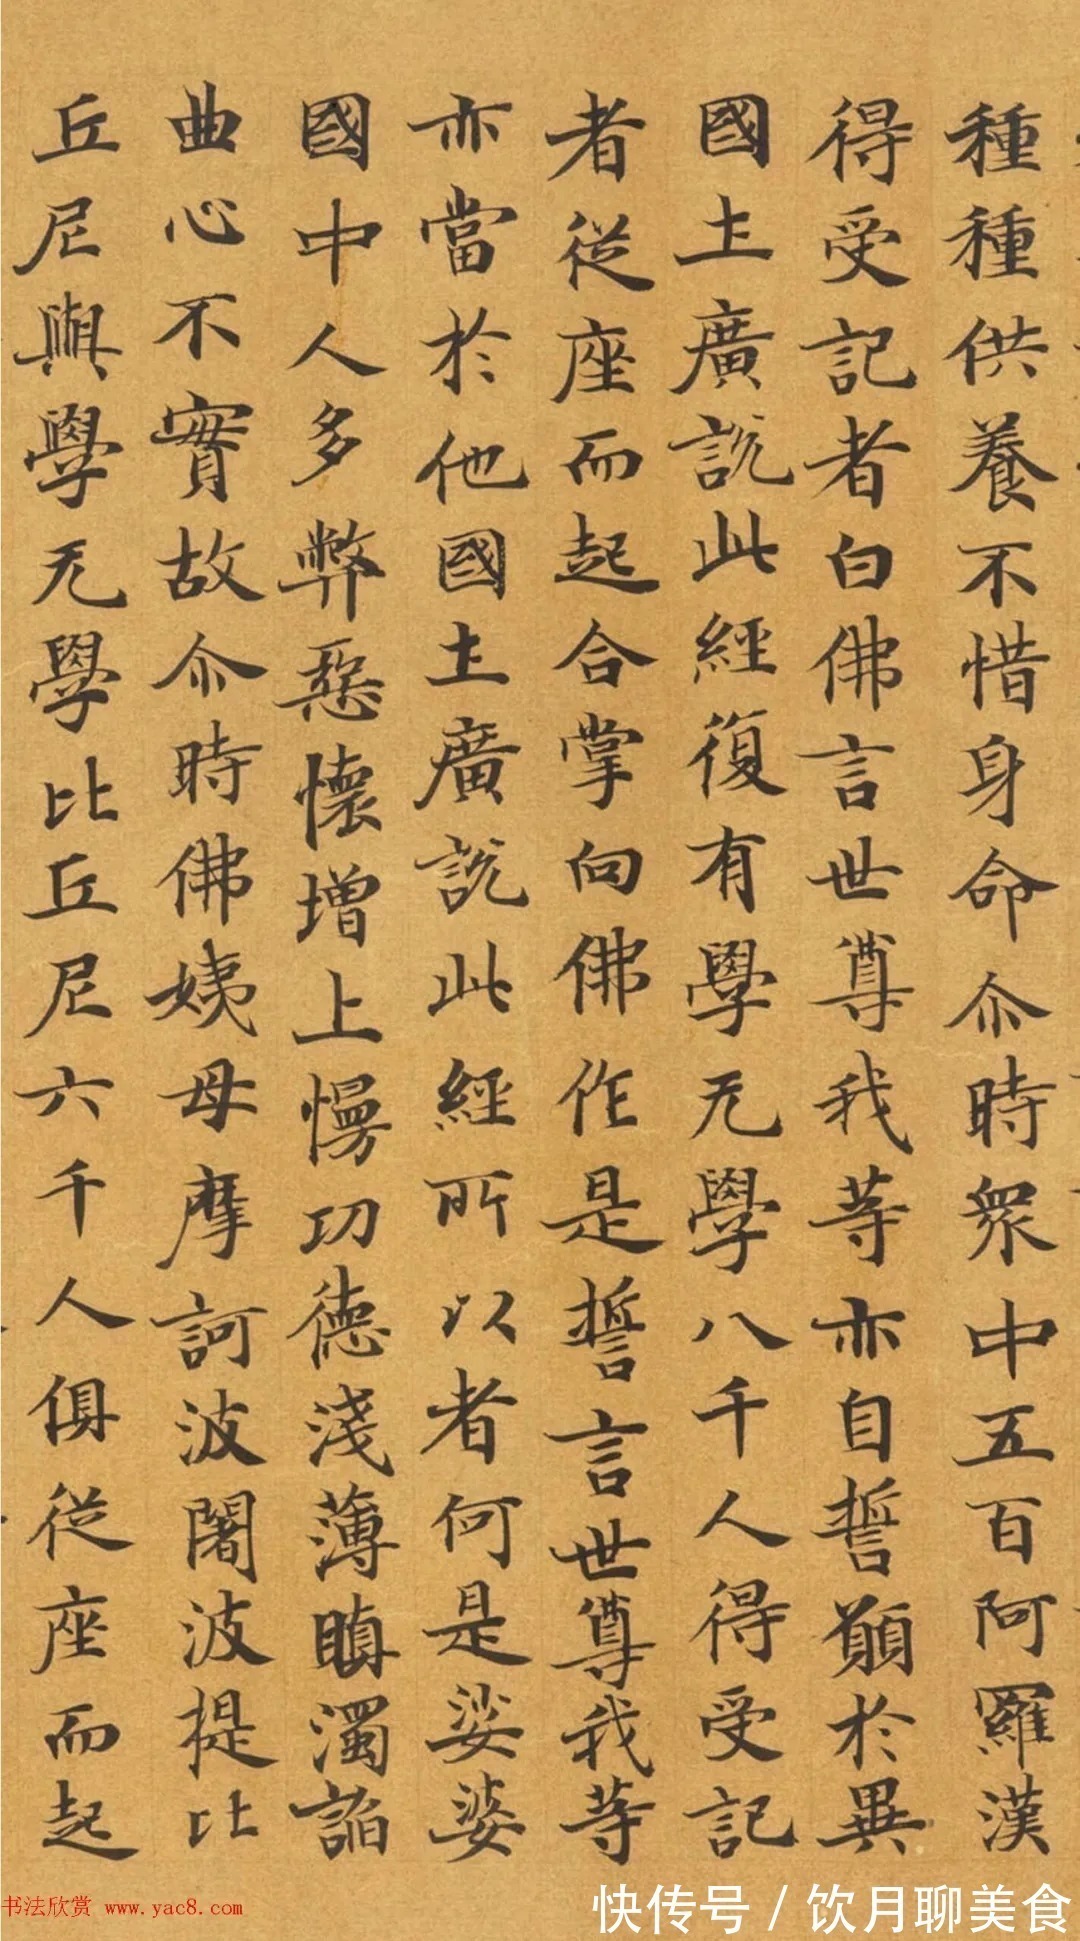 種種供養不惜身命尒時眾中五百阿羅漢
得受記者白佛言世尊我等亦自誓願於異
國土廣說此經復有學无學八千人得受記
者從座而起合掌向佛作是誓言世尊我等
亦當於他國土廣說此經所以者何是娑婆
國中人多弊惡懷增上慢功德淺薄瞋濁諂
曲心不實故尒時佛姨母摩訶波闍波提比
丘尼與學无學比丘尼六千人俱從座而起
书法欣赏 www.yac8.com
快传号 / 饮月聊美食